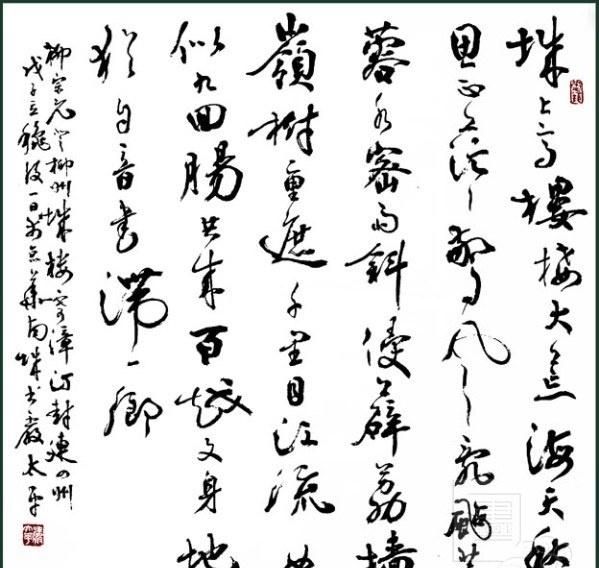 城上高樓接大荒海天愁
思正茫茫驚風亂颭芙
蓉水密雨斜侵薜荔墻
嶺樹重遮千里目江流曲
似九回腸共來百越文身地
猶自音書滯一鄉
柳宗元登柳州城樓寄漳汀封連四州
戊子立穐後一日於京華南城書嚴太平